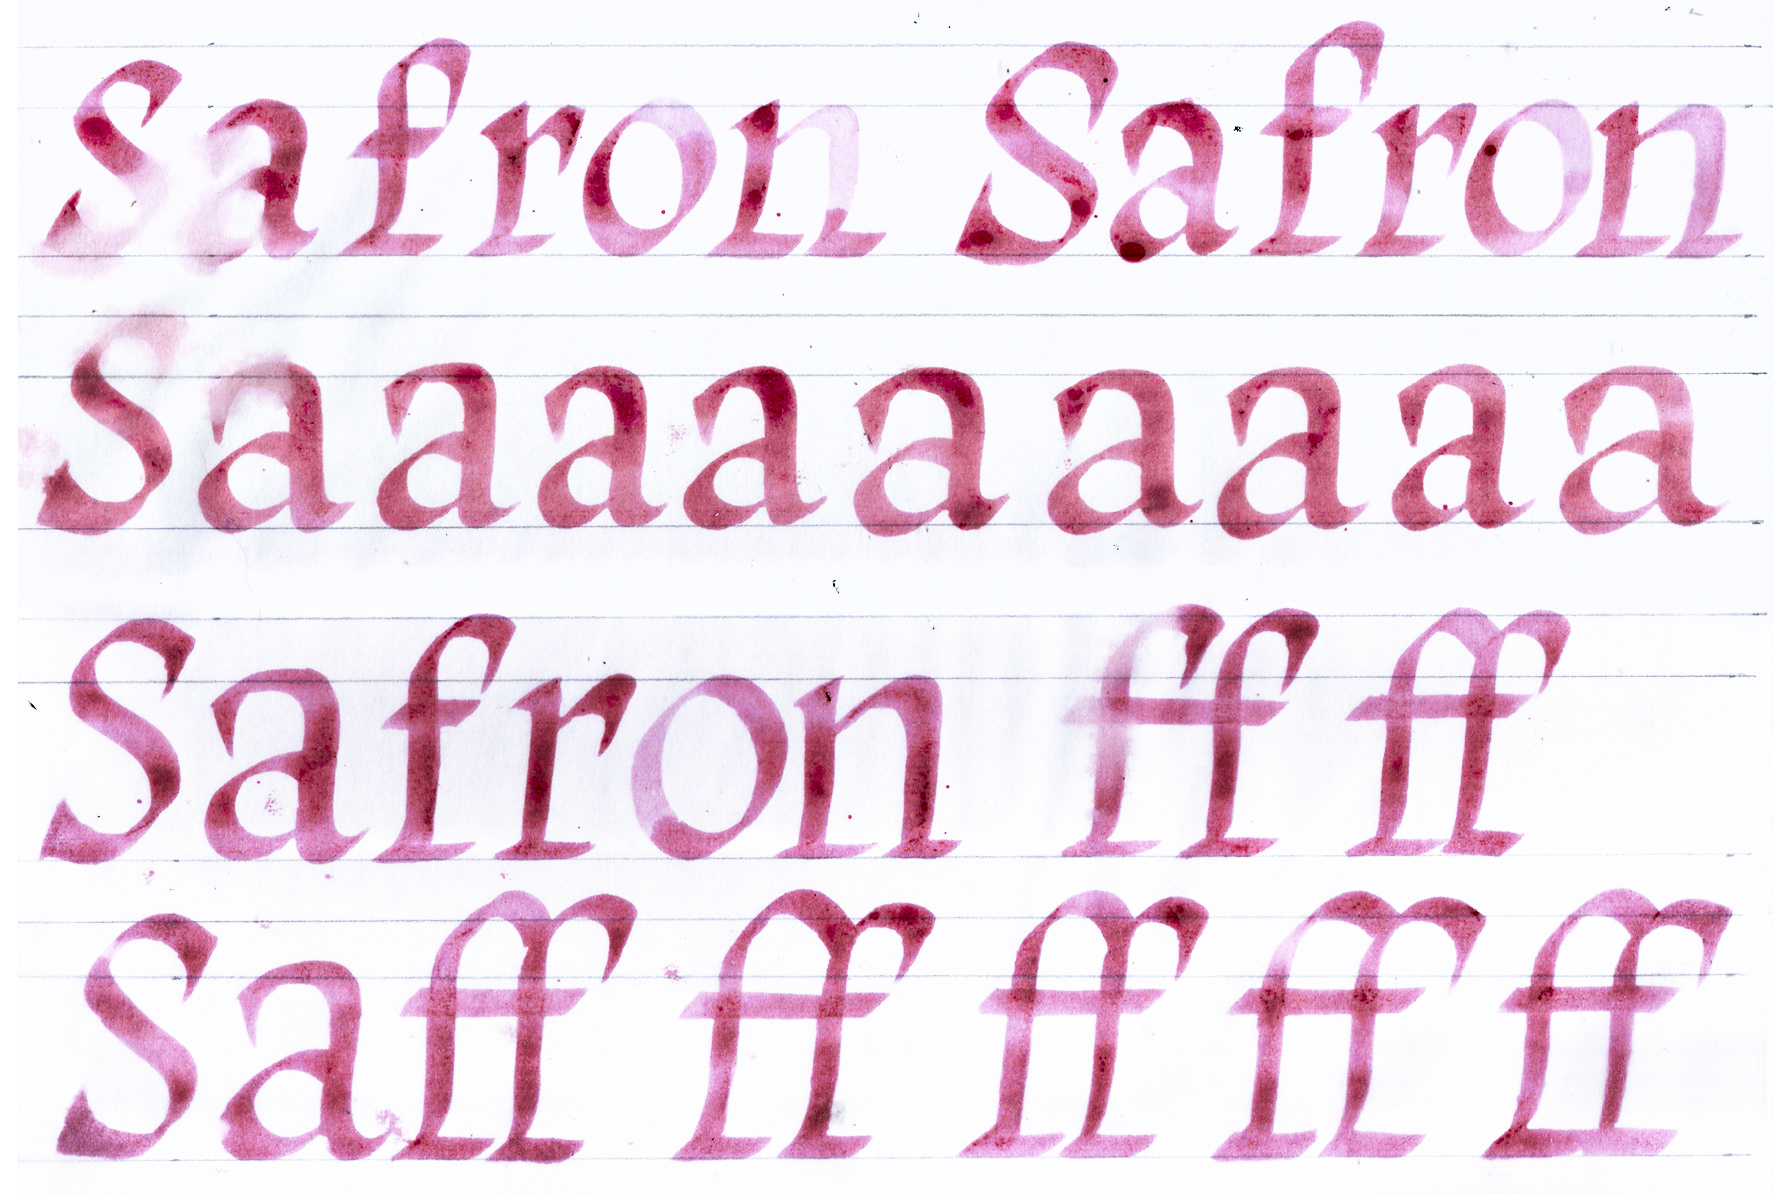 Safron Safron
Saaaaaaaaa
Safron ff ff
Saff ff ff ff ff